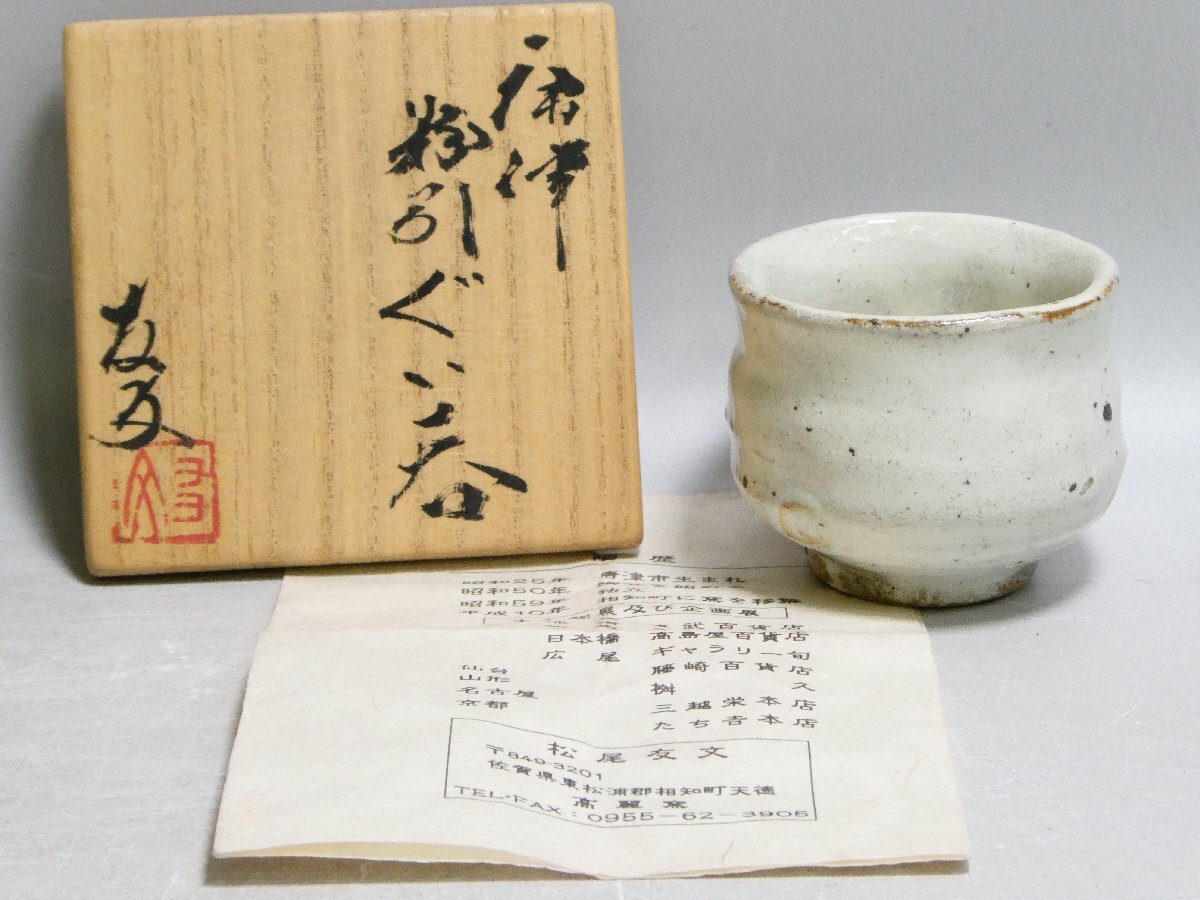 唐津
粉引ぐい呑
友文
歴
昭和25年 唐津市生まれ
昭和50年 独立
昭和59年 相知町に窯を移築
平成10年
展及び企画展
日本橋 高島屋百貨店
広尾 ギャラリー旬
仙台 藤崎百貨店
山形 桝久
名古屋 三越栄本店
京都 たち吉本店
松尾友文
〒849-3201
佐賀県東松浦郡相知町天徳
高麗窯
TEL・FAX:0955-62-3905